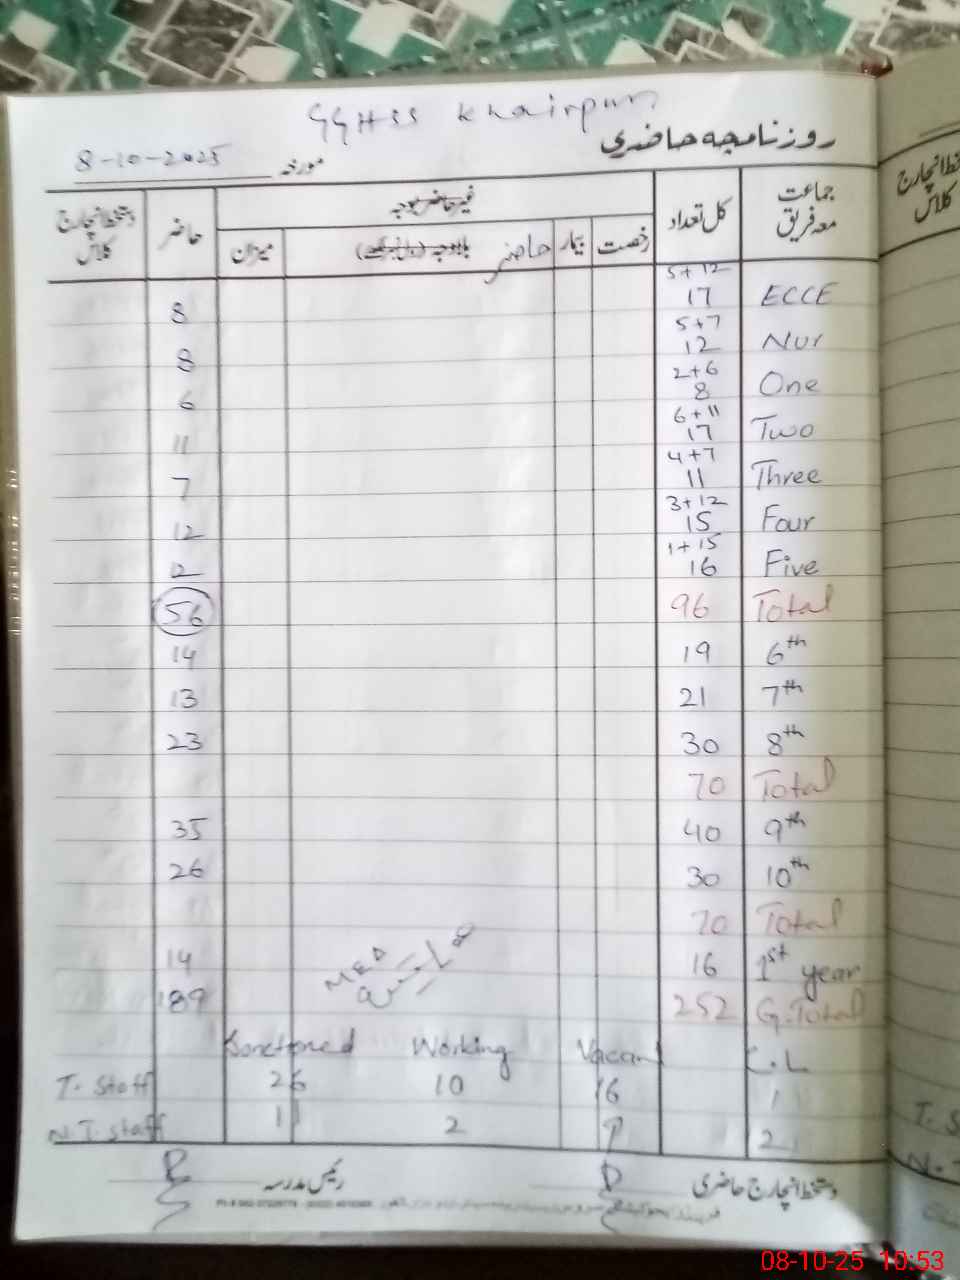 GGHSS Khairpur
روزنامچہ حاضری
مورخہ 8-10-2025
جماعت معہ فریق | کل تعداد | غیر حاضر بوجہ | حاضر | دستخط انچارج کلاس
رخصت | بیمار | حاضر | بلاوجہ | میزان
ECCE 5+12 17 8
Nur 5+7 12 8
One 2+6 8 6
Two 6+11 17 11
Three 4+7 11 7
Four 3+12 15 12
Five 1+15 16 12
Total 96 56
6th 19 14
7th 21 13
8th 30 23
Total 70
9th 40 35
10th 30 26
Total 70
1st year 16 14
G.Total 252 189
Sanctioned Working Vacant C.L
T. Staff 26 10 16 1
N.T. Staff 11 2 9 2
دستخط انچارج حاضری رئیس مدرسہ
خط انچارج
کلاس
T. S
N.T
08-10-25 10:53